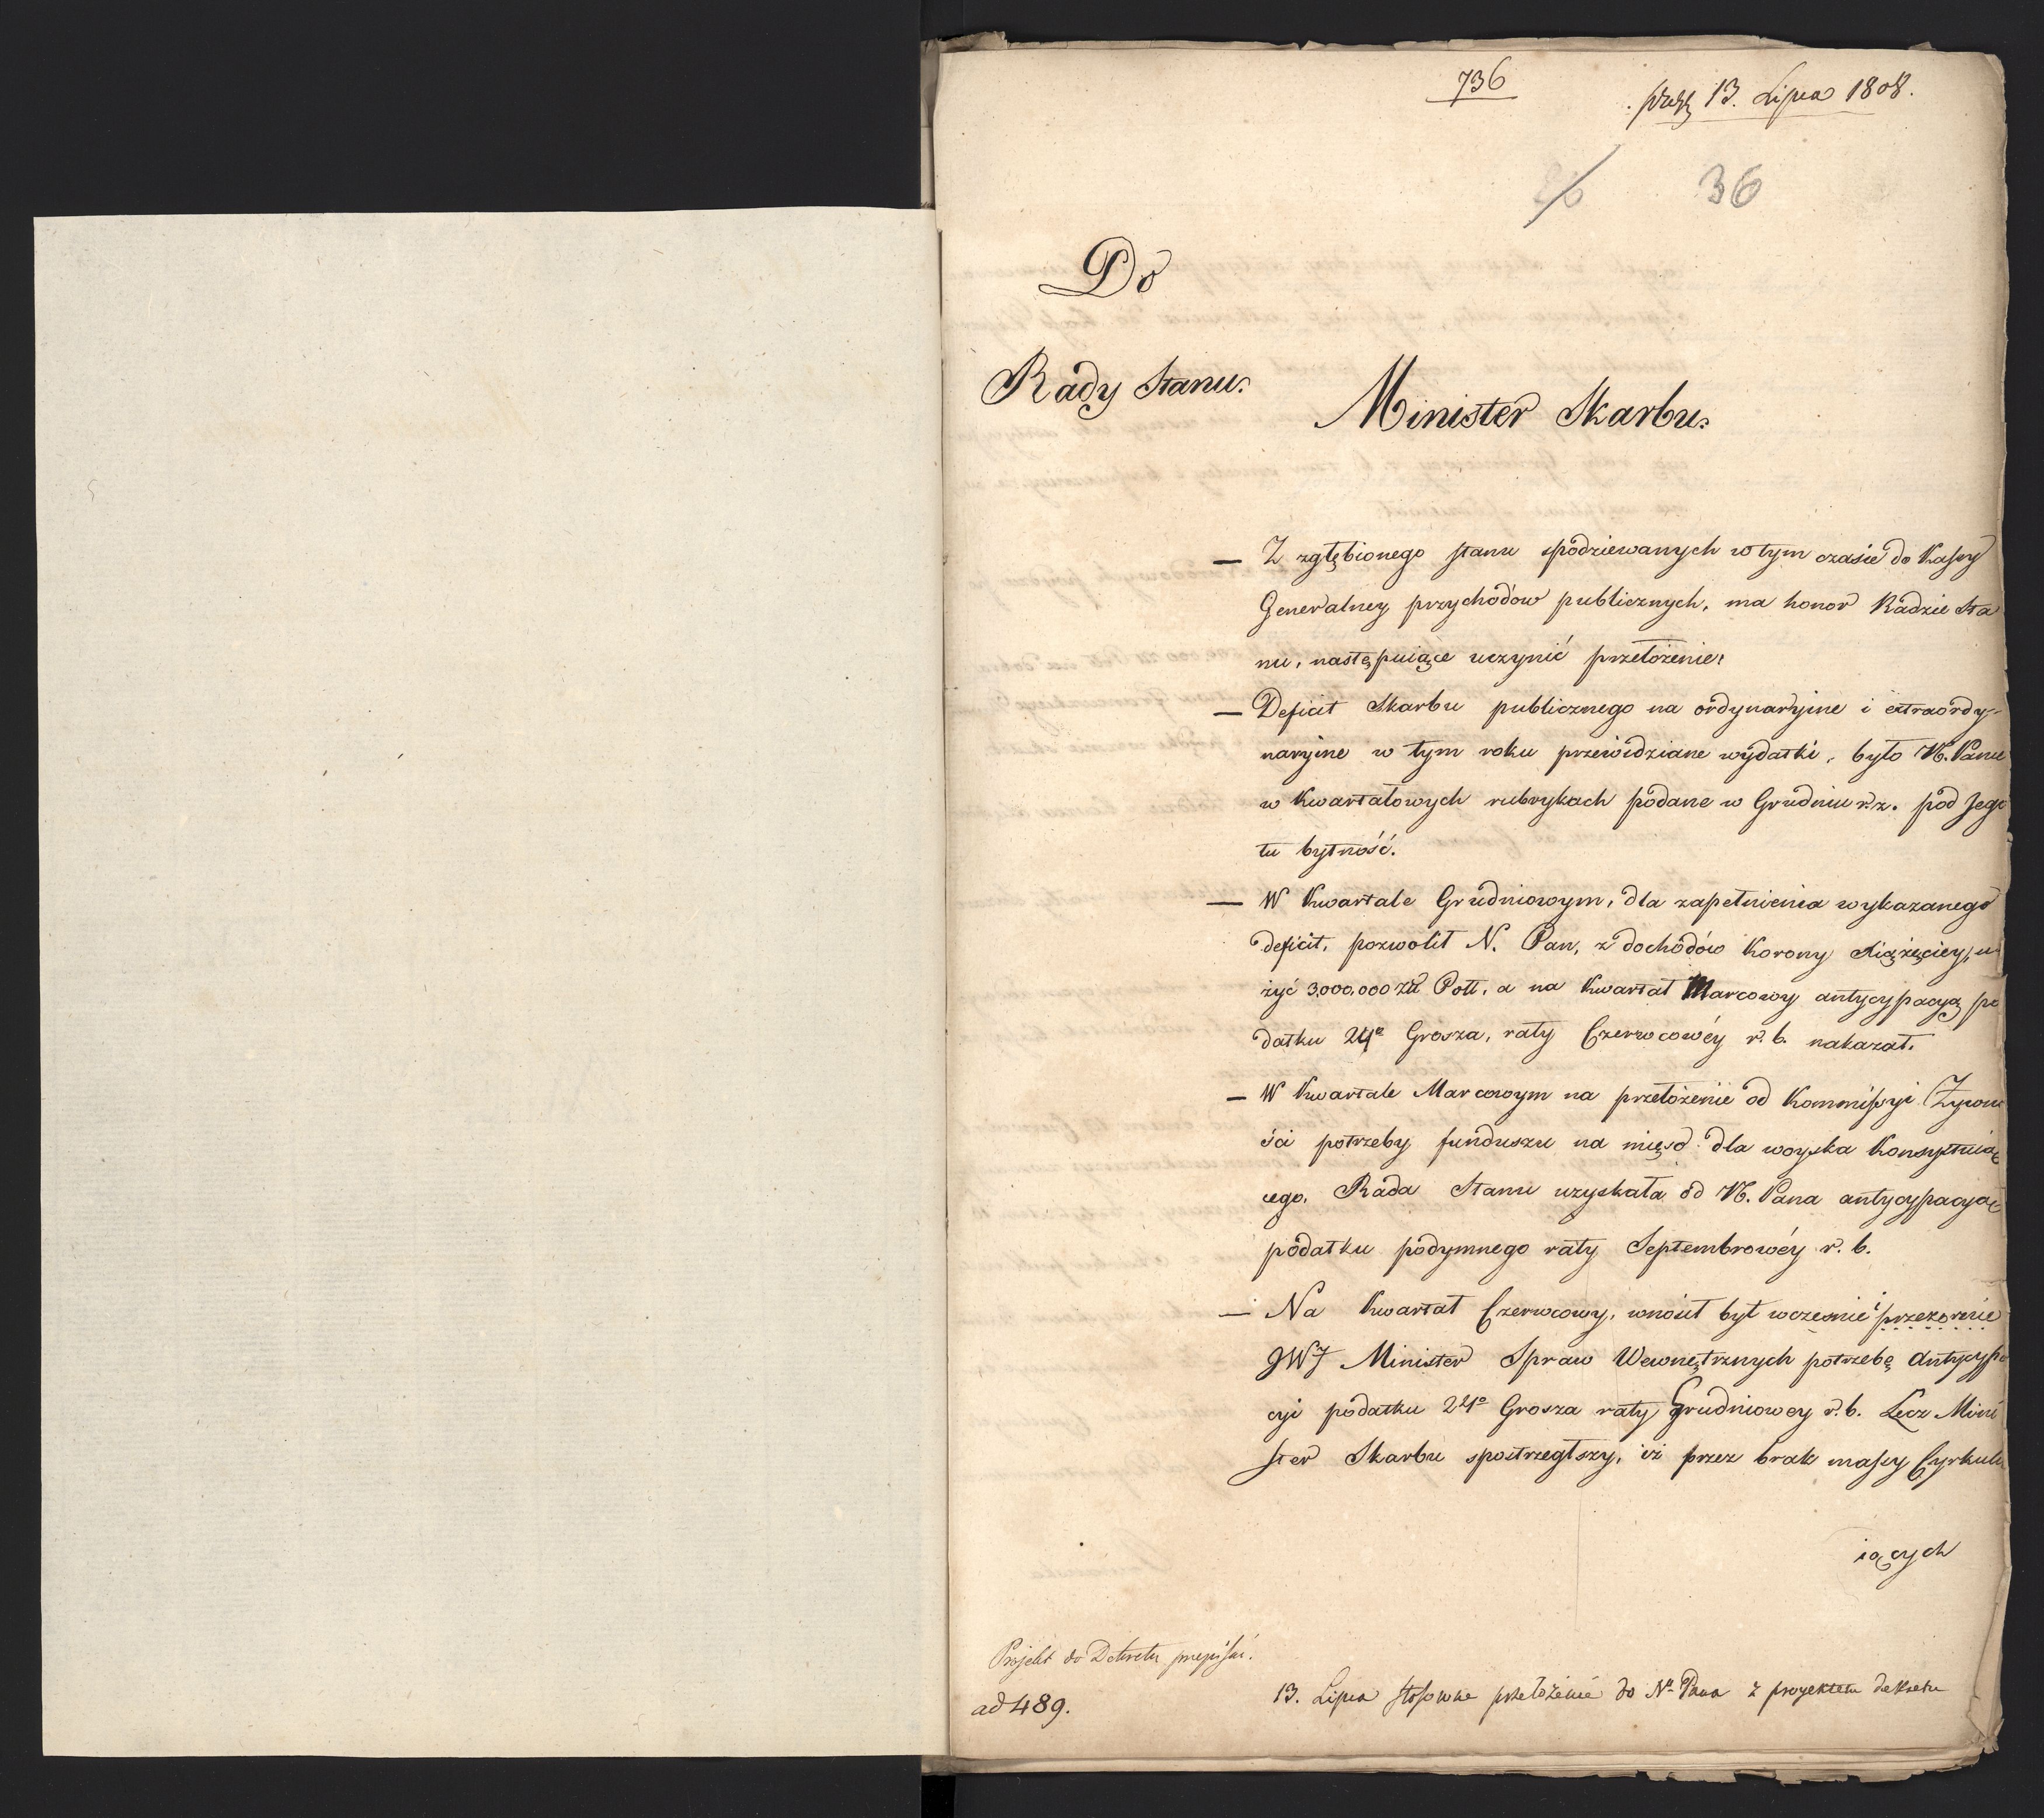 736
13. Lipca 1808.
26
36
Do
Rady Stanu.
Minister Skarbu.
— Z zgłębionego stanu spodziewanych w tym czasie do Kassy
Generalney przychodow publicznych, ma honor Radzie Sta
nu, następuiące uczynić przełożenie:
— Deficit Skarbu publicznego na ordynaryine i extraordy-
naryine w tym roku przewidziane wydatki, było N. Panu
w Kwartałowych rubrykach podane w Grudniu r. z. pod Jego
tu bytność.
— W Kwartale Grudniowym, dla zapełnienia wykazanego
deficit, pozwolił N. Pan, z dochodów Korony Xiążęciey, u
żyć 3,000,000 Złł Poll, a na Kwartał Marcowy antycypacyą po
datku 24º Grosza, raty Czerwcowéy r. b. nakazał.
— W Kwartale Marcowym na przełożenie od Kommissyi Żywno
ści potrzeby funduszu na mięso dla woyska Konsystuią
cego, Rada Stanu uzyskała od N. Pana antycypacyą
podatku podymnego raty Septembrowéy r. b.
— Na Kwartał Czerwcowy, wnosił był wczesnie i przezornie
JWJ Minister Spraw Wewnętrznych potrzebę Antycypa
cyi podatku 24º Grosza raty Grudniowey r. b. Lecz Mini
ster Skarbu spostrzegłszy, iż przez brak massy Cyrkulu
iących
Projekt do Dekretu przepisać.
ad 489.
13. Lipca stosowne przełożenie do N. Pana z proyektem dekretu